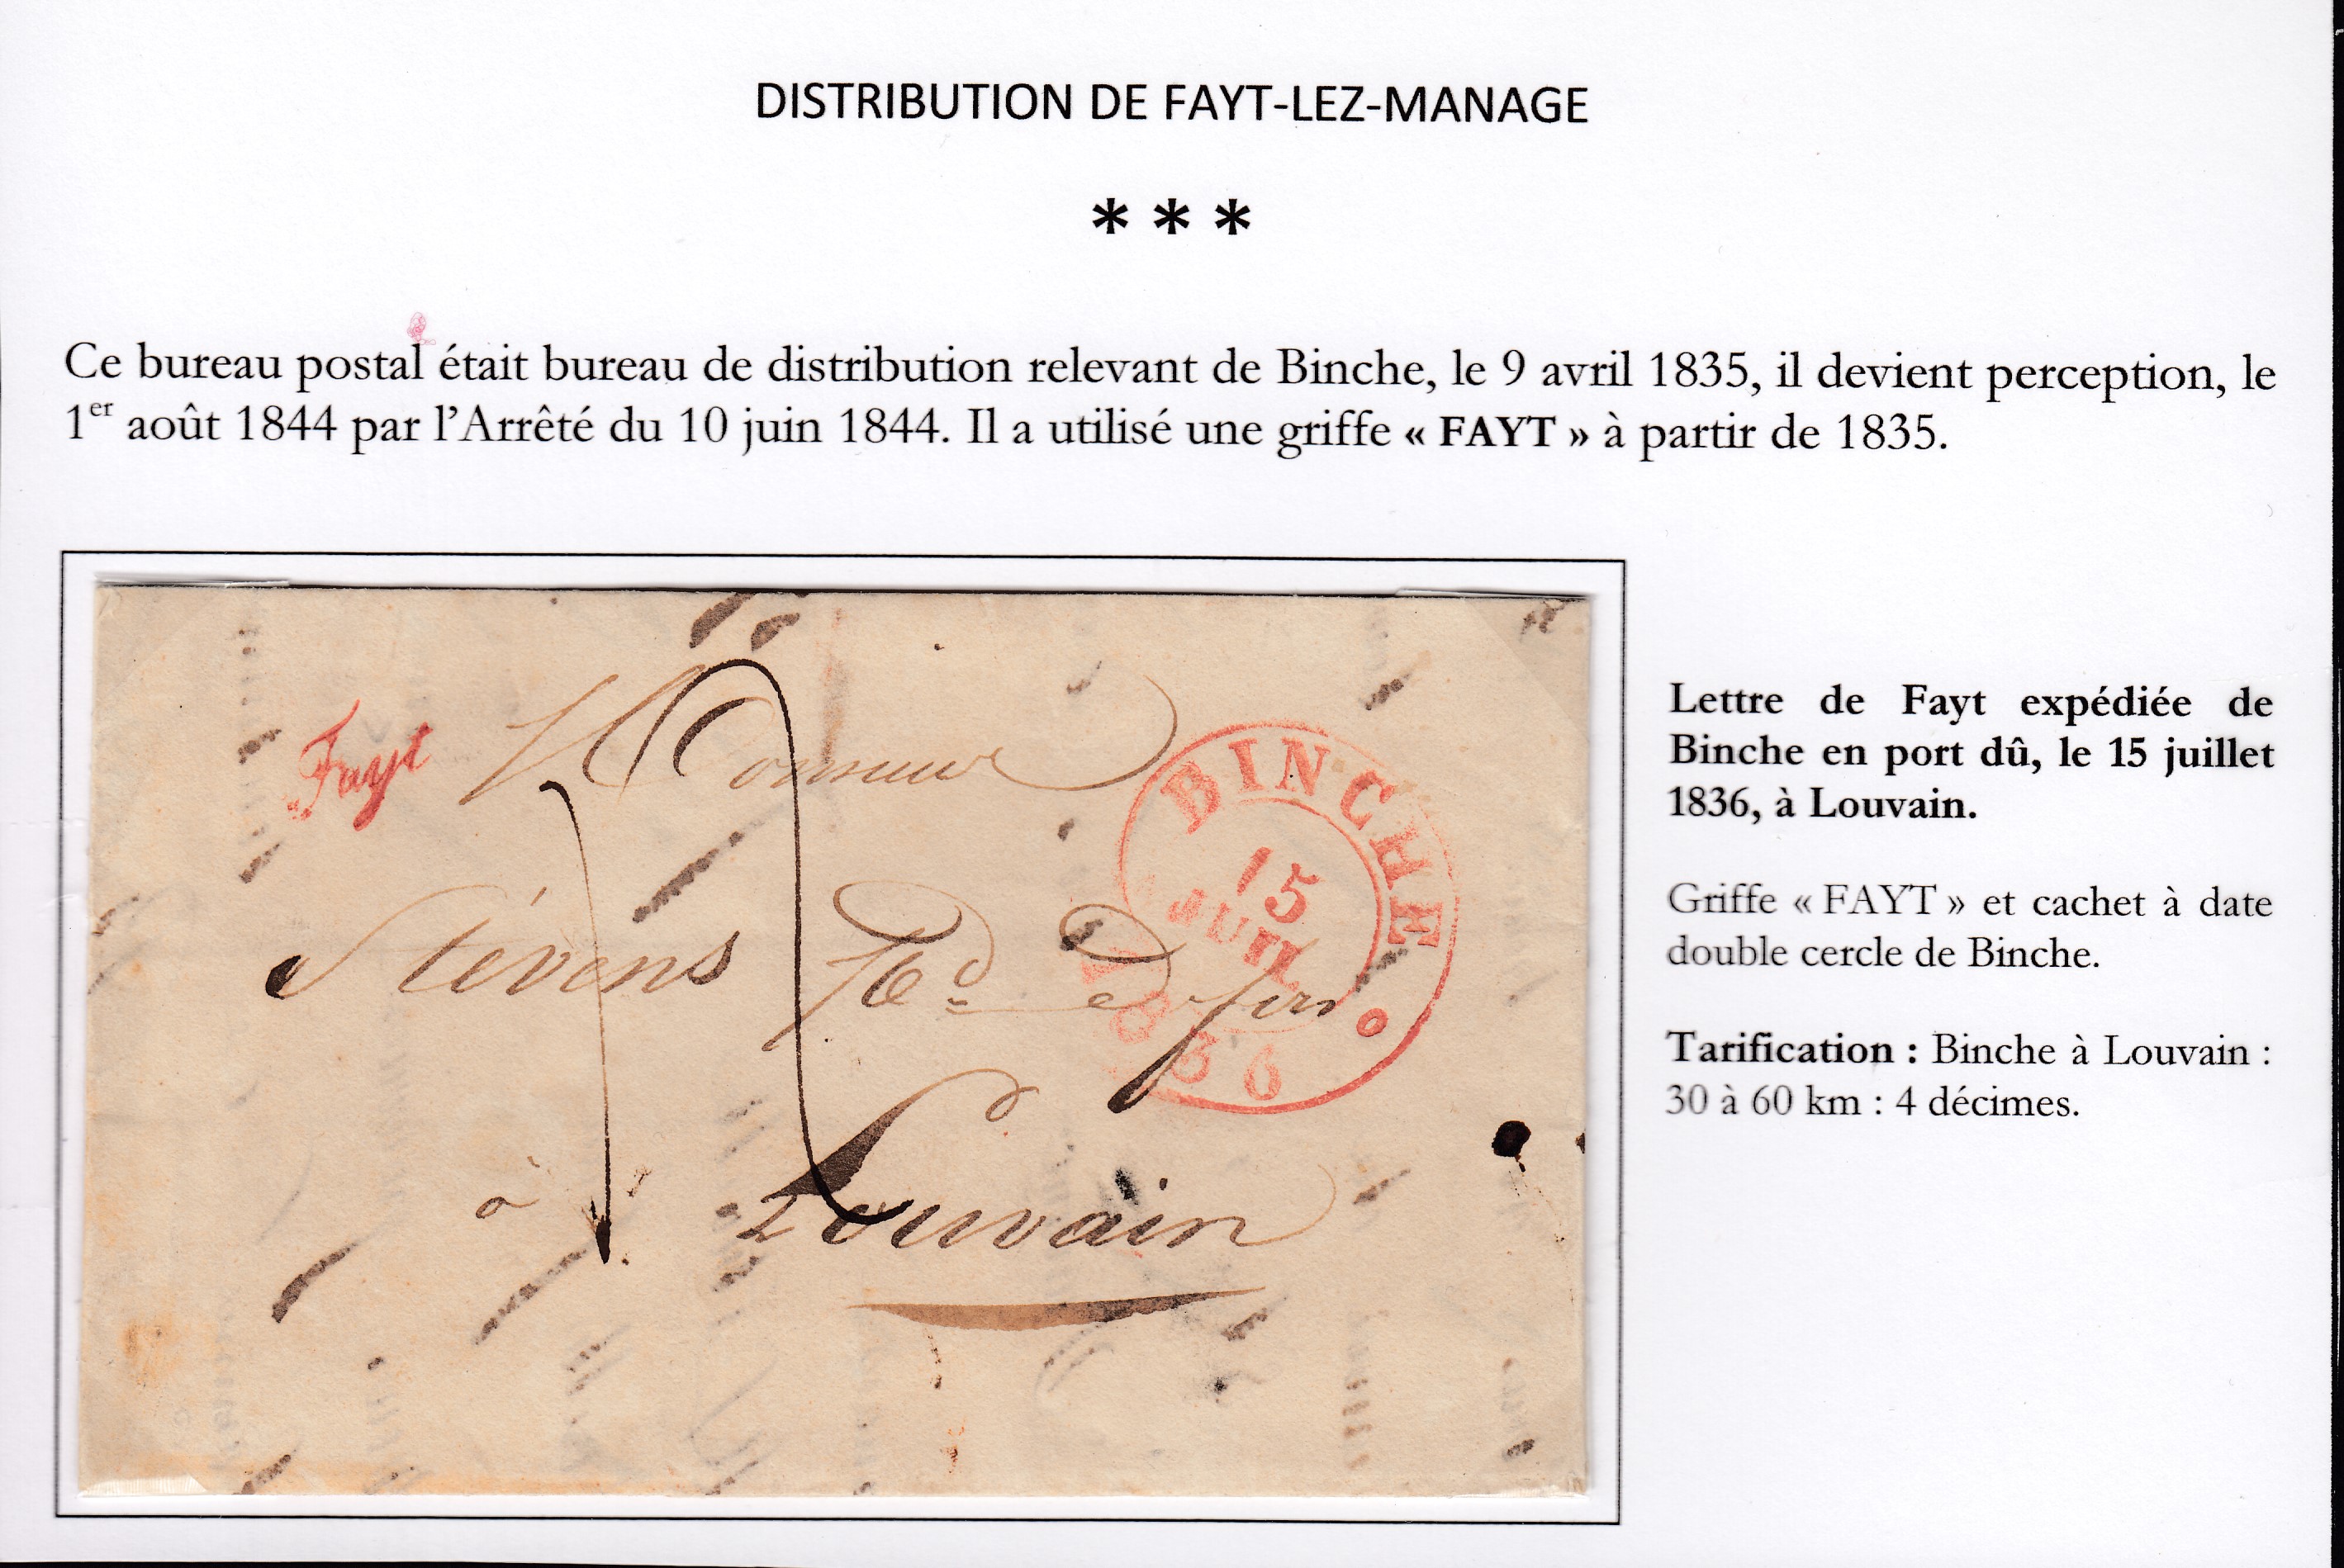 DISTRIBUTION DE FAYT-LEZ-MANAGE
* * *
Ce bureau postal était bureau de distribution relevant de Binche, le 9 avril 1835, il devient perception, le
1er août 1844 par l'Arrêté du 10 juin 1844. Il a utilisé une griffe « FAYT » à partir de 1835.
Fayt
Monsieur
BINCHE
15
JUIL
1836
Stévens
à Louvain
Lettre de Fayt expédiée de
Binche en port dû, le 15 juillet
1836, à Louvain.
Griffe « FAYT » et cachet à date
double cercle de Binche.
Tarification : Binche à Louvain :
30 à 60 km : 4 décimes.